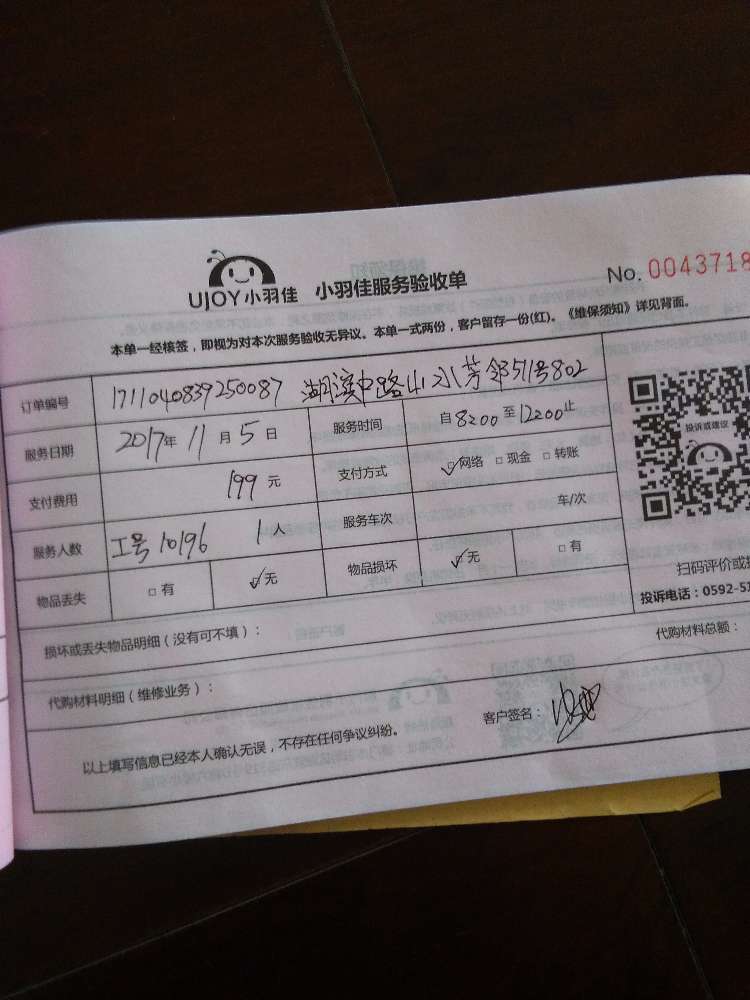 UJOY小羽佳 小羽佳服务验收单 No. 0043718
本单一经核签，即视为对本次服务验收无异议。本单一式两份，客户留存一份(红)。《维保须知》详见背面。
订单编号 1711040839250087 湖滨中路山水芳邻511号802
服务日期 2017年 11月 5日 服务时间 自 8:00 至 12:00 止
支付费用 199 元 支付方式 ☑网络 □现金 □转账
服务人数 工号10196 1人 服务车次 车/次
物品丢失 □有 ☑无 物品损坏 ☑无 □有
投诉或建议
扫码评价或
投诉电话：0592-5
损坏或丢失物品明细（没有可不填）：
代购材料明细（维修业务）： 代购材料总额：
以上填写信息已经本人确认无误，不存在任何争议纠纷。 客户签名：